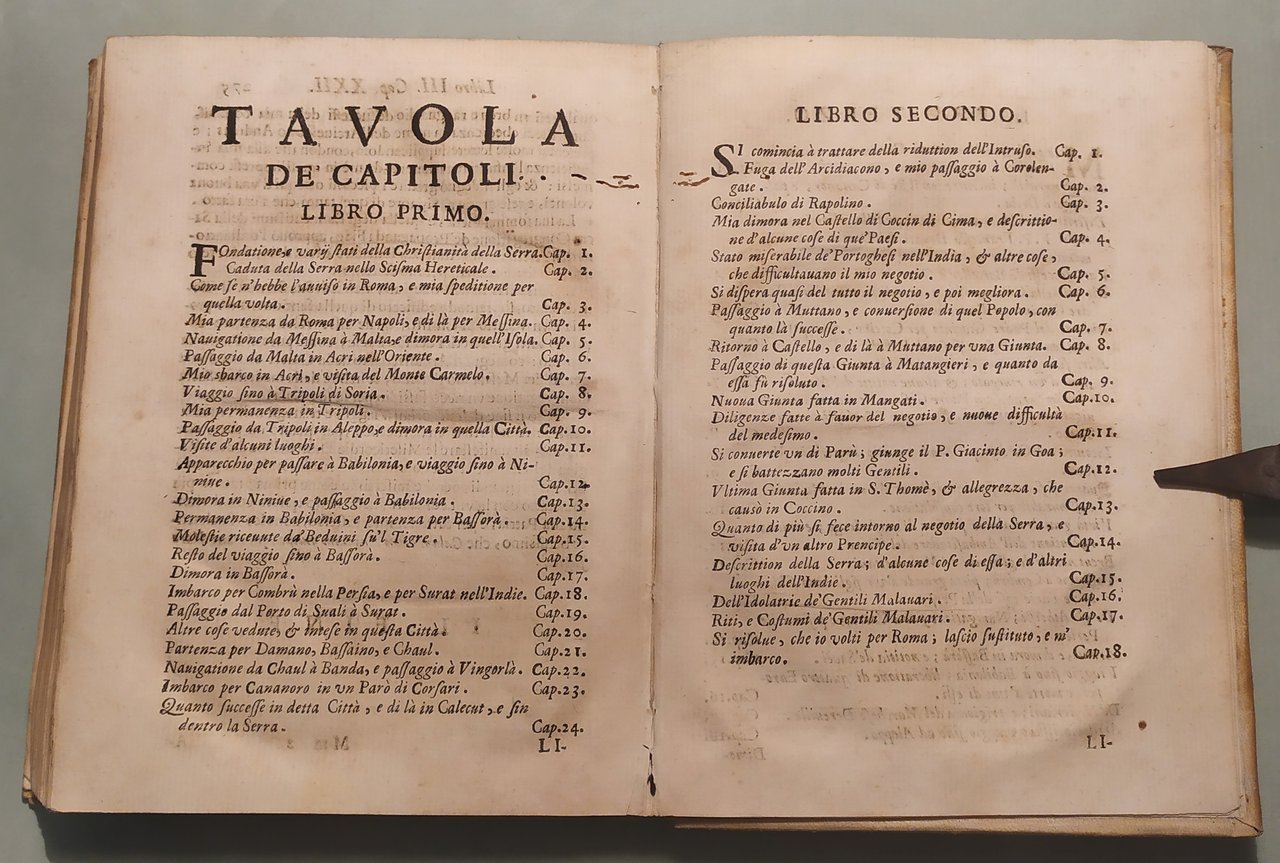 TAVOLA
DE' CAPITOLI.
LIBRO PRIMO.
FOndatione, e varij stati della Christianità della Serra. Cap. 1.
Caduta della Serra nello Scisma Hereticale. Cap. 2.
Come se n'hebbe l'auuiso in Roma, e mia speditione per
quella volta. Cap. 3.
Mia partenza da Roma per Napoli, e di là per Messina. Cap. 4.
Nauigatione da Messina à Malta, e dimora in quell'Isola. Cap. 5.
Passaggio da Malta in Acri nell'Oriente. Cap. 6.
Mio sbarco in Acri, e visita del Monte Carmelo. Cap. 7.
Viaggio sino à Tripoli di Soria. Cap. 8.
Mia permanenza in Tripoli. Cap. 9.
Passaggio da Tripoli in Aleppo, e dimora in quella Città. Cap. 10.
Visite d'alcuni luoghi. Cap. 11.
Apparecchio per passare à Babilonia, e viaggio sino à Ni-
niue. Cap. 12.
Dimora in Niniue, e passaggio à Babilonia. Cap. 13.
Permanenza in Babilonia, e partenza per Bassorà. Cap. 14.
Molestie riceuute da' Beduini su'l Tigre. Cap. 15.
Resto del viaggio sino à Bassorà. Cap. 16.
Dimora in Bassorà. Cap. 17.
Imbarco per Combrù nella Persia, e per Surat nell'Indie. Cap. 18.
Passaggio dal Porto di Suali à Surat. Cap. 19.
Altre cose vedute, & intese in questa Città. Cap. 20.
Partenza per Damano, Bassaino, e Chaul. Cap. 21.
Nauigatione da Chaul à Banda, e passaggio à Vingorlà. Cap. 22.
Imbarco per Cananoro in vn Parò di Corsari. Cap. 23.
Quanto successe in detta Città, e di là in Calecut, e sin
dentro la Serra. Cap. 24.
LI-
LIBRO SECONDO.
SI comincia à trattare della riduttion dell'Intruso. Cap. 1.
Fuga dell'Arcidiacono, e mio passaggio à Corolen-
gate. Cap. 2.
Conciliabulo di Rapolino. Cap. 3.
Mia dimora nel Castello di Coccin di Cima, e descrittio-
ne d'alcune cose di que' Paesi. Cap. 4.
Stato miserabile de' Portoghesi nell'India, & altre cose,
che difficultauano il mio negotio. Cap. 5.
Si dispera quasi del tutto il negotio, e poi megliora. Cap. 6.
Passaggio à Muttano, e conuersione di quel Popolo, con
quanto là successe. Cap. 7.
Ritorno à Castello, e di là à Muttano per vna Giunta. Cap. 8.
Passaggio di questa Giunta à Matangieri, e quanto da
essa fù risoluto. Cap. 9.
Nuoua Giunta fatta in Mangati. Cap. 10.
Diligenze fatte à fauor del negotio, e nuoue difficultà
del medesimo. Cap. 11.
Si conuerte vn di Parù; giunge il P. Giacinto in Goa;
e si battezzano molti Gentili. Cap. 12.
Vltima Giunta fatta in S. Thomè, & allegrezza, che
causò in Coccino. Cap. 13.
Quanto di più si fece intorno al negotio della Serra, e
visita d'vn altro Prencipe. Cap. 14.
Descrittion della Serra; d'alcune cose di essa; e d'altri
luoghi dell'Indie. Cap. 15.
Dell'Idolatrie de' Gentili Malauari. Cap. 16.
Riti, e Costumi de' Gentili Malauari. Cap. 17.
Si risolue, che io volti per Roma; lascio sustituto, e m'
imbarco. Cap. 18.
LI-